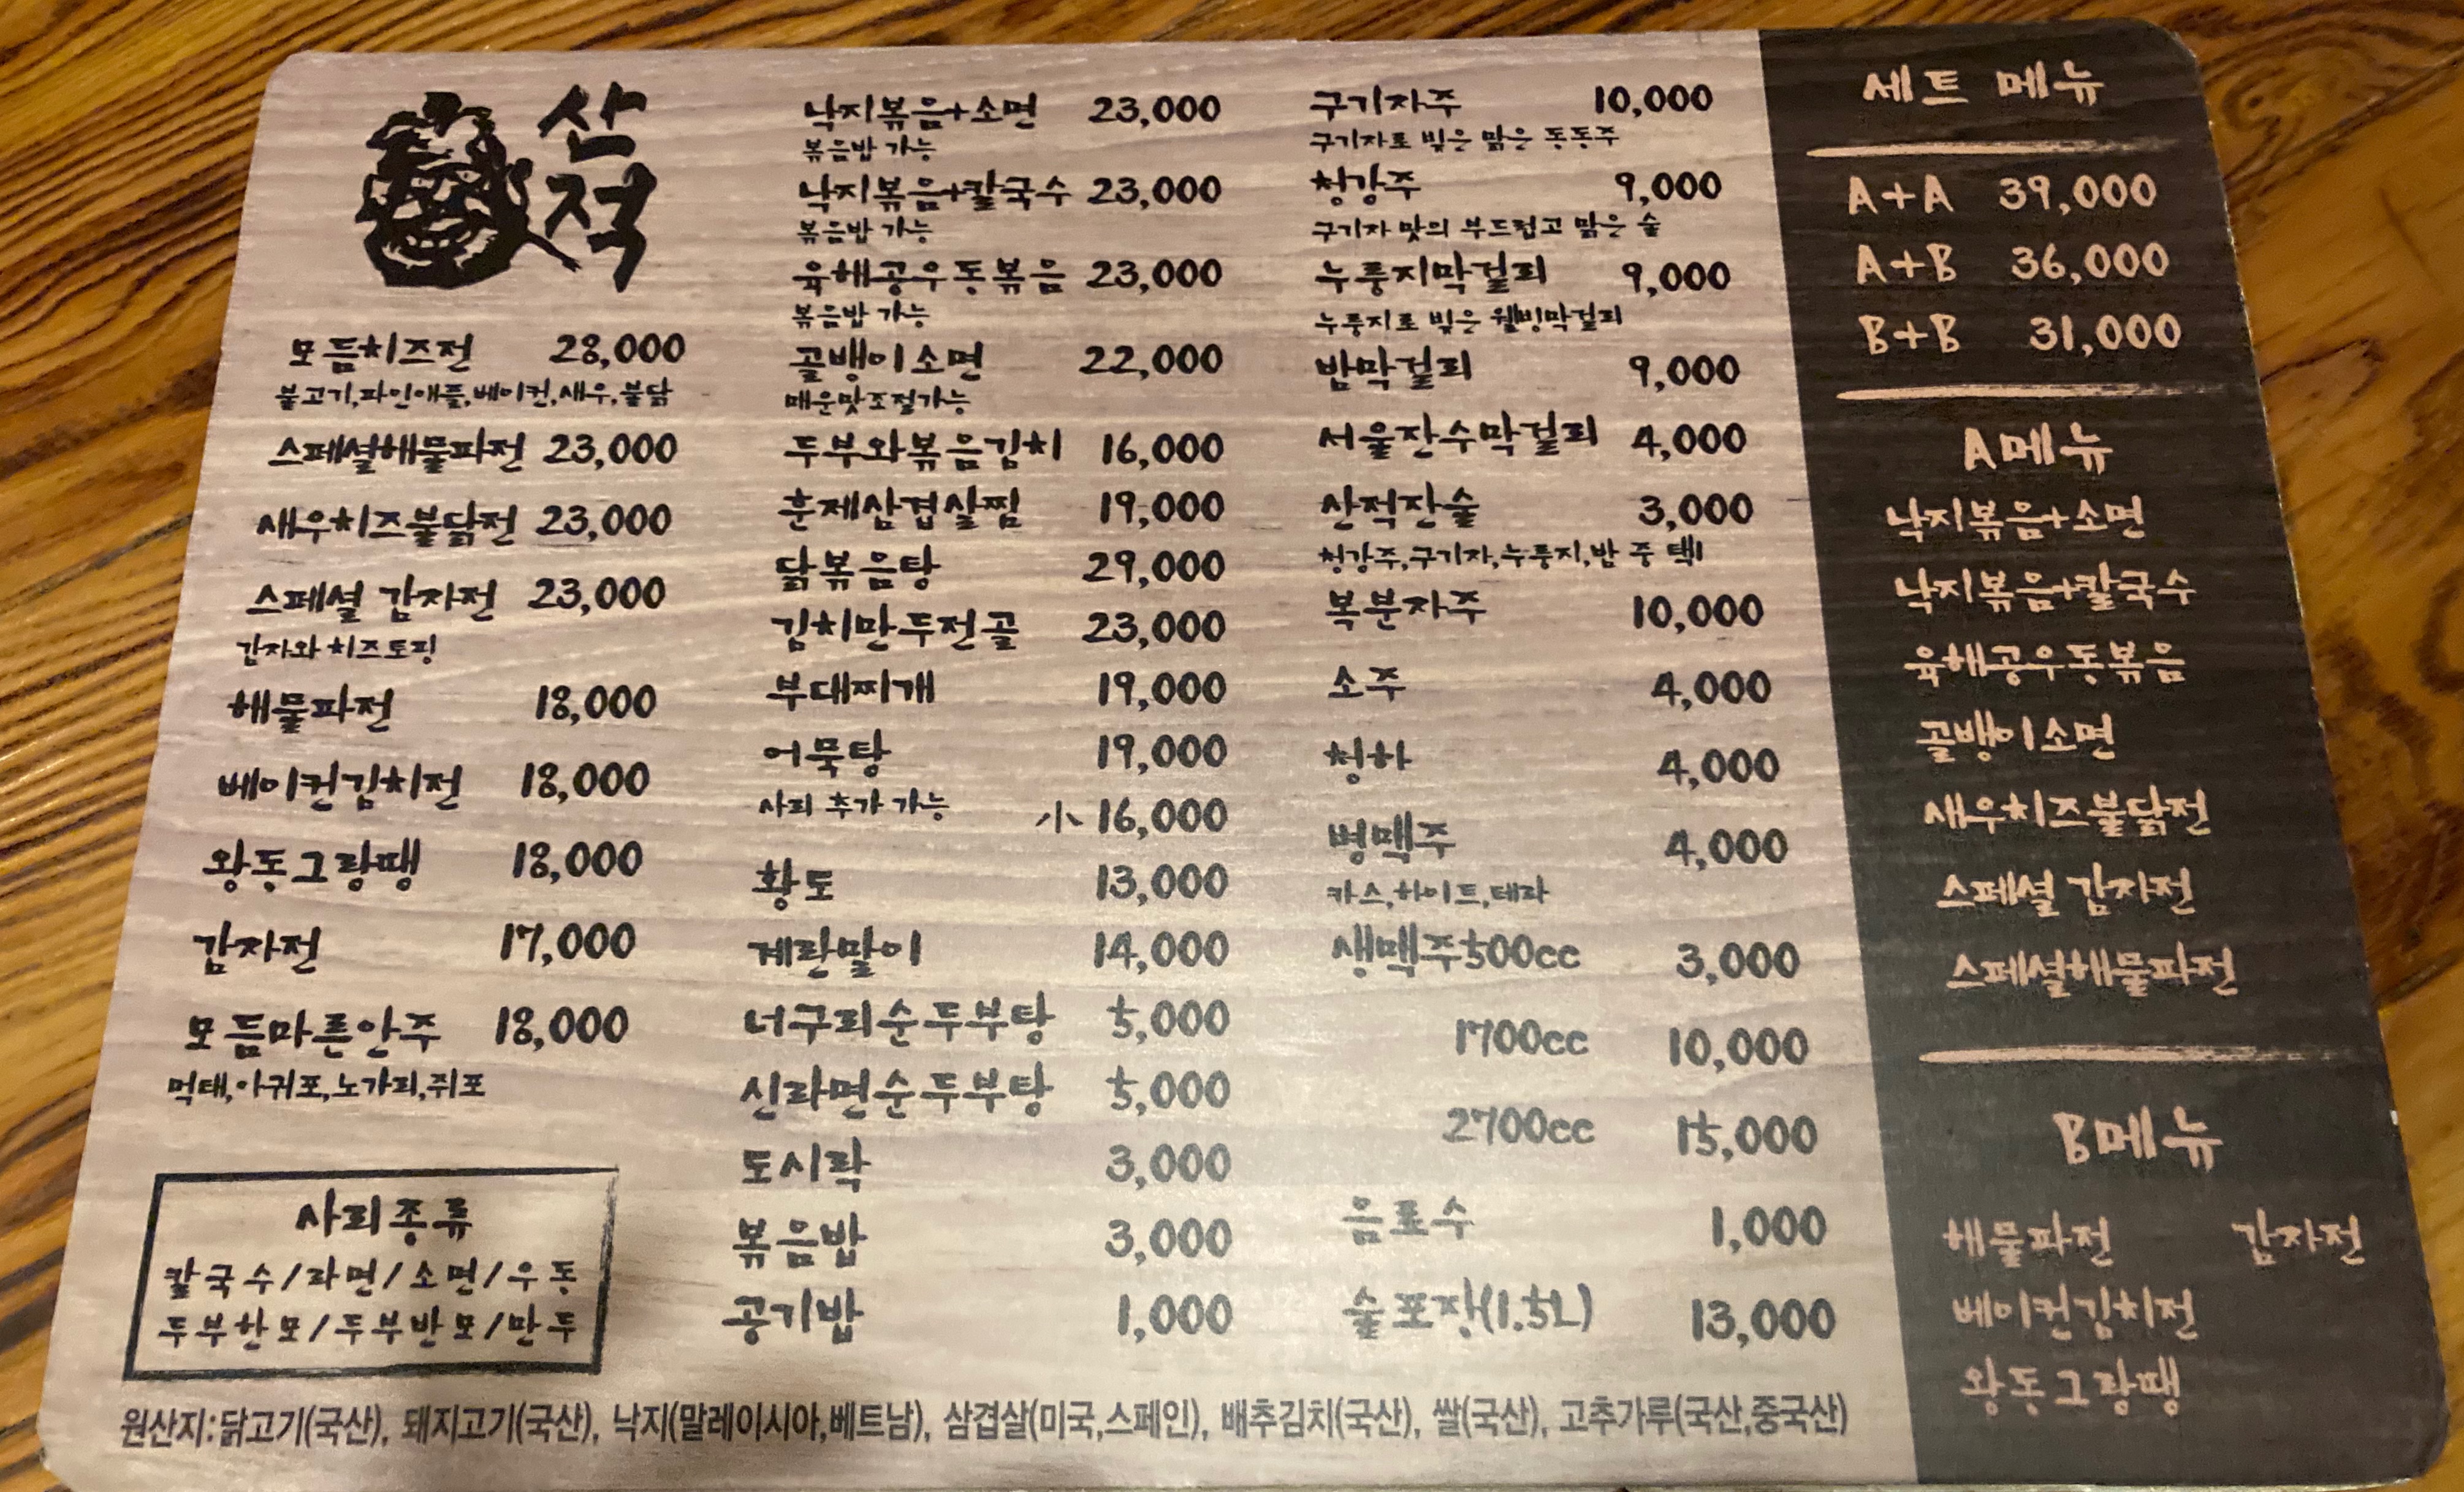 산적
모듬치즈전 28,000
불고기,파인애플,베이컨,새우,불닭
스페셜해물파전 23,000
새우치즈불닭전 23,000
스페셜 감자전 23,000
감자와 치즈토핑
해물파전 18,000
베이컨김치전 18,000
왕동그랑땡 18,000
감자전 17,000
모듬마른안주 18,000
먹태,아귀포,노가리,쥐포
사리종류
칼국수/라면/소면/우동
두부한모/두부반모/만두
낙지볶음+소면 23,000
볶음밥 가능
낙지볶음+칼국수 23,000
볶음밥 가능
육해공우동볶음 23,000
볶음밥 가능
골뱅이소면 22,000
매운맛조절가능
두부와볶음김치 16,000
훈제삼겹살찜 19,000
닭볶음탕 29,000
김치만두전골 23,000
부대찌개 19,000
어묵탕 19,000
사리 추가 가능 小 16,000
황도 13,000
계란말이 14,000
너구리순두부탕 5,000
신라면순두부탕 5,000
도시락 3,000
볶음밥 3,000
공기밥 1,000
구기자주 10,000
구기자로 빚은 맑은 동동주
청강주 9,000
구기자 맛의 부드럽고 맑은 술
누룽지막걸리 9,000
누룽지로 빚은 웰빙막걸리
밤막걸리 9,000
서울장수막걸리 4,000
산적잔술 3,000
청강주,구기자,누룽지,밤 중 택1
복분자주 10,000
소주 4,000
청하 4,000
병맥주 4,000
카스,하이트,테라
생맥주500cc 3,000
1700cc 10,000
2700cc 15,000
음료수 1,000
술포장(1.5L) 13,000
세트 메뉴
A+A 39,000
A+B 36,000
B+B 31,000
A메뉴
낙지볶음+소면
낙지볶음+칼국수
육해공우동볶음
골뱅이소면
새우치즈불닭전
스페셜 감자전
스페셜해물파전
B메뉴
해물파전 감자전
베이컨김치전
왕동그랑땡
원산지:닭고기(국산), 돼지고기(국산), 낙지(말레이시아,베트남), 삼겹살(미국,스페인), 배추김치(국산), 쌀(국산), 고추가루(국산,중국산)